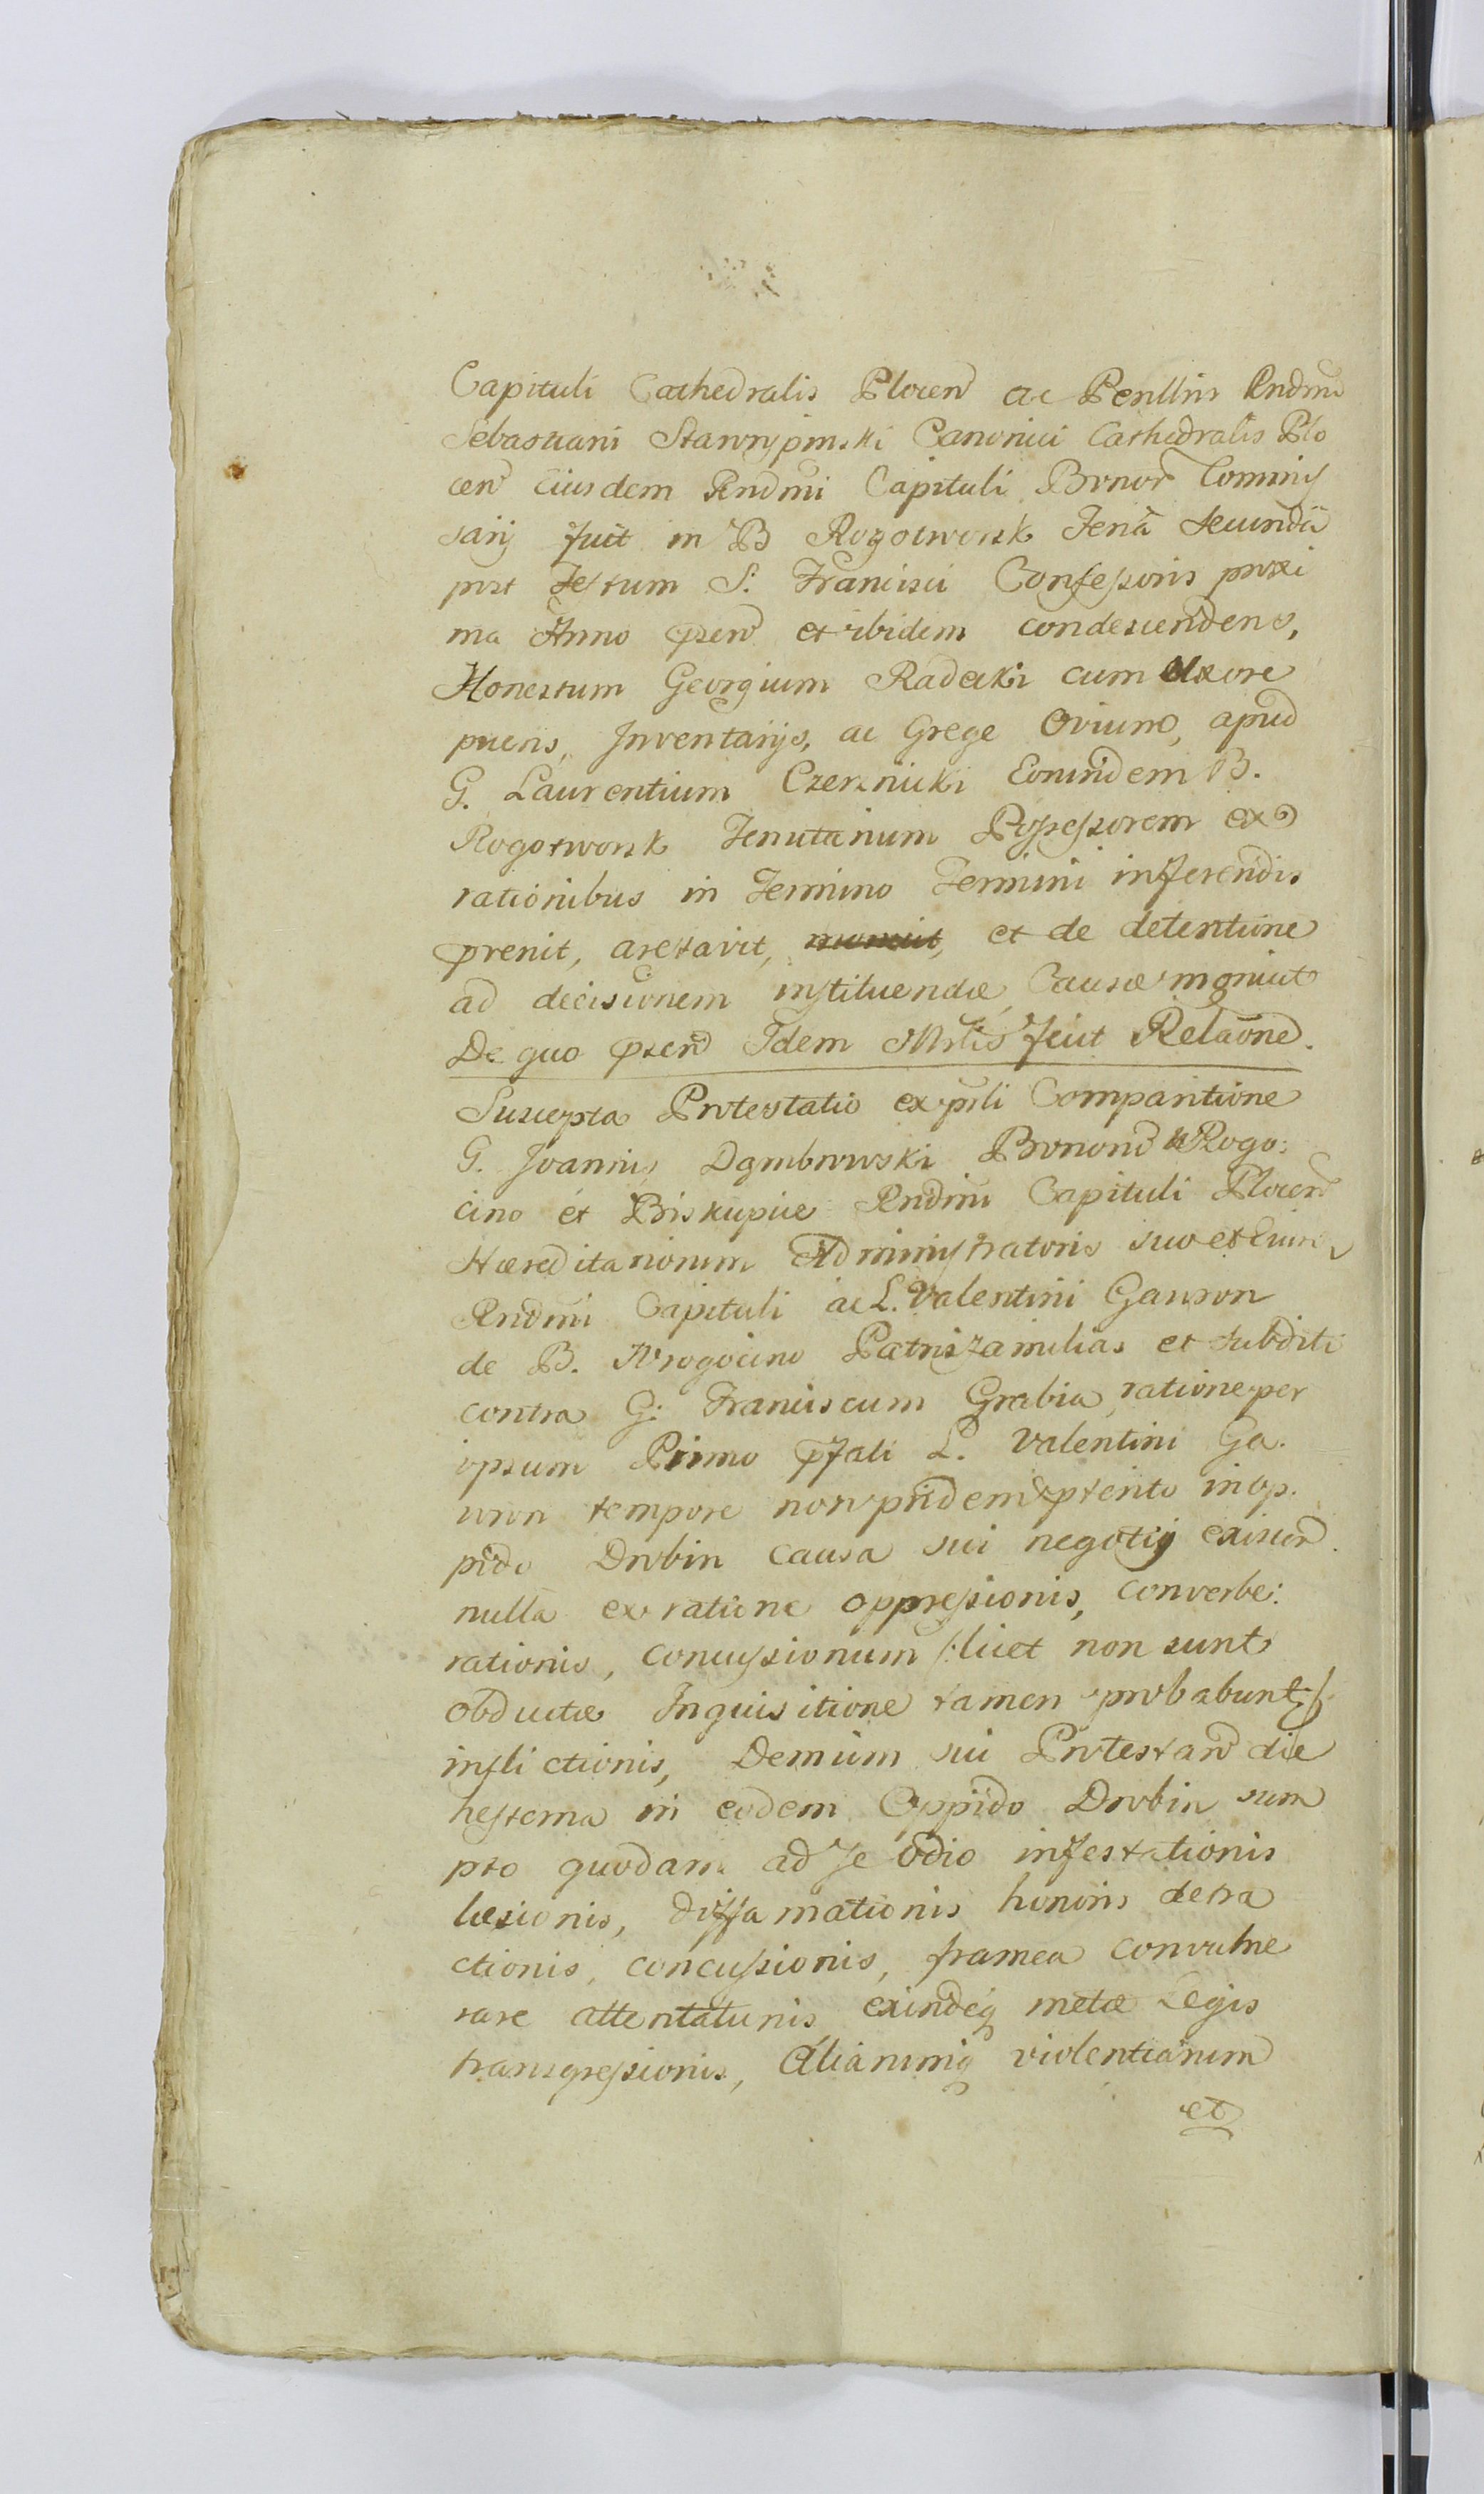 Capituli Cathedralis Plocen ac Penllris Rndmi
Sebastiani Stawrypinski Canonici Cathedralis Plo
cen Eiusdem Rndmi Capituli Bonor Commis
sarij fuit in B Rogotworsk Feria secunda
post Festum S. Francisci Confessoris proxi
ma Anno psen et ibidem condescendens,
Honestum Georgium Radecki cum Uxore
pueris, Inventarijs, ac Grege Ovium, apud
G. Laurentium Czernicki Eorundem B.
Rogotworsk Tenutarium Possessorem ex
rationibus in Termino Termini inferendis
prenit, arestavit, et de detentione
ad decisionem instituendæ Causæ moniuit
De quo psen Idem Mrlis fecit Relaone.
Suscepta Protestatio ex psli Comparitione
G. Joannis Dąmbrowski Bonorū Rogo:
cino et Biskupice Rndmi Capituli Plocen
Hæreditariorum Administratoris suo et
Rndmi Capituli ac L. Valentini Gauron
de B. Wrogocino Patrisfamilias et subditi
contra G. Franciscum Grabia ratione per
ipsum Primo pfati L. Valentini Ga.
uron tempore non pridem pterito in op.
pido Drobin causa sui negotij existen.
nulla ex ratione oppressionis, converbe:
rationis, concussionum /: licet non sunt
obductæ Inquisitione tamen probabunt :/
inflictionis, Demum sui Protestan die
hesterna in eodem Oppido Drobin sum
pto quodam ad se odio infestationis
læsionis, diffamationis honoris detra
ctionis, concussionis, framea convulne
rare attentatunis exindeq metæ Legis
transgressionis, Aliarumq violentiarum
et